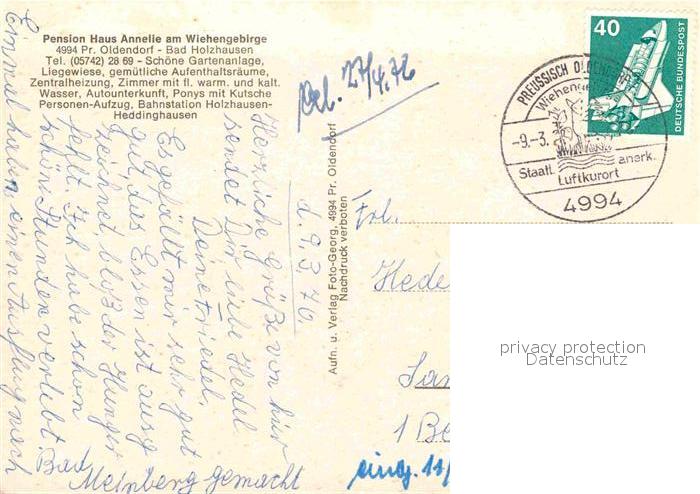 Pension Haus Annelie am Wiehengebirge
4994 Pr. Oldendorf - Bad Holzhausen
Tel. (05742) 28 69 - Schöne Gartenanlage,
Liegewiese, gemütliche Aufenthaltsräume,
Zentralheizung, Zimmer mit fl. warm. und kalt.
Wasser, Autounterkunft, Ponys mit Kutsche
Personen-Aufzug, Bahnstation Holzhausen-
Heddinghausen
27/4. 76
d. 9.3.76
Herzliche Grüße von hier
sendet Dir liebe Hedel
Deine Friedel.
Es gefällt mir sehr gut
gut, das Essen ist ausg
zeichnet bloß der Hunger
fehlt. Ich habe schon
schöne Stunden verlebt
Einmal haben einen Ausflug nach
Bad
Meinberg gemacht
Aufn. u. Verlag Foto-Georg, 4994 Pr. Oldendorf
Nachdruck verboten
40
DEUTSCHE BUNDESPOST
PREUSSISCH OLDENDORF
Wiehenge
-9.-3.
Staatl. anerk.
Luftkurort
4994
Frl.
Hede
1 Be
eing. 11/
privacy protection
Datenschutz